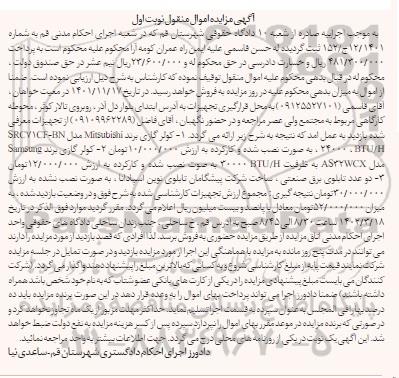 آگهی مزایده اموال منقول نوبت اول
به موجب اجراییه صادره از شعبه ۱۰ دادگاه حقوقی شهرستان قم که در شعبه اجرای احکام مدنی قم به شماره
۱۵۲/ج/۱۴۰۱ ثبت گردیده له حسن قاسمی علیه ایمن راه عمران کومه آرا محکوم علیه محکوم است به پرداخت
۴۸۱/۲۰۰/۰۰۰ ریال و خسارت دادرسی در حق محکوم له و ۲۳/۶۰۰/۰۰۰ ریال نیم عشر در حق صندوق دولت ،
محکوم له در قبال بدهی محکوم علیه اموال منقول توقیف نموده که کارشناس به شرح ذیل ارزیابی نموده است. ضمنا
از اموال به میزان بدهی محکوم علیه در روز مزایده به فروش خواهد رسید. در تاریخ ۱۴۰۱/۱۱/۱۷ در معیت خواهان ،
آقای قاسمی (۰۹۱۲۵۵۲۷۱۰۱) به محل قرارگیری تجهیزات به آدرس ابتدای بلوار دل آذر ، روبروی تالار کوثر ، محوطه
کارگاهی مربوط به مجتمع ولی عصر مراجعه و در حضور نگهبان ، آقای فاضل (۰۹۱۰۹۹۶۲۲۸۹) از تجهیزات معرفی
شده بازدید به عمل آمد که نتیجه به شرح زیر ارائه می گردد. ۱- کولر گازی برند Mitsubishi مدل SRCV۱CF-BN
۲۴۰۰۰ ، BTU/H ، به صورت نصب شده و کارکرده به ارزش ۱۰/۰۰۰/۰۰۰ تومان ۲- کولر گازی برند Samsung
مدل AS۳۲WCX به ظرفیت ۳۰۰۰۰ BTU/H به صورت نصب شده و کارکرده به ارزش ۱۲/۰۰۰/۰۰۰ تومان
۳- دو عدد تابلوی برق صنعتی ، ساخت شرکت پیشگامان تابلوی نوین اسپادانا ، به صورت نصب نشده به ارزش
۳۰/۰۰۰/۰۰۰ تومان نتیجه گیری : مجموع ارزش تجهیزات کارشناسی شده به شرح فوق و در وضعیت بازدید شده ، به
میزان ۵۲/۰۰۰/۰۰۰ تومان معادل با پانصد و بیست میلیون ریال اعلام می گردد. مقرر گردید موارد فوق الذکر در تاریخ
۱۴۰۲/۳/۱۸ لغایت ۸/۳۰ الی ۸/۴۵ صبح به آدرس قم خ ساحلی ، جنب زندان ساحلی دادگاه های حقوقی واحد
اجرای احکام مدنی اتاق مزایده از طریق مزایده حضوری به فروش برسد. لذا افرادی که قصد بازدید از مورد مزایده را دارند
می توانند در مدت پنج روز مانده به مزایده با هماهنگی این اجرا از مورد مزایده بازدید و در صورت تمایل در جلسه مزایده
شرکت نمایند قیمت پایه از مبلغ کارشناسی شروع و به کسانی که بالاترین مبلغ را پیشنهاد دهند واگذار می گردد. (شرکت
کنندگان می بایست مبلغ پیشنهادی مزایده را در یکی از کارت های بانکی عضو شتاب که به نام خود شخص باشد همراه
داشته باشند) ضمنا دادورز اجرا می تواند پرداخت بهای اموال را به وعده قرار دهد در این صورت برنده مزایده باید ده
درصد بها را فی المجلس به عنوان سپرده به قسمت اجرا تسلیم نماید. حداکثر مهلت مزبور از یک ماه تجاوز نخواهد کرد و
در صورتی که برنده مزایده در موعد مقرر بهای اموال را نپردازد سپرده پس از کسر هزینه مزایده به نفع دولت ضبط خواهد
شد. این آگهی یک نوبت در یکی از روزنامه های محلی درج می گردد. جهت اطلاعات بیشتر به واحد مراجعه نمائید.
دادورز اجرای احکام دادگستری شهرستان قم-ساعدی نیا